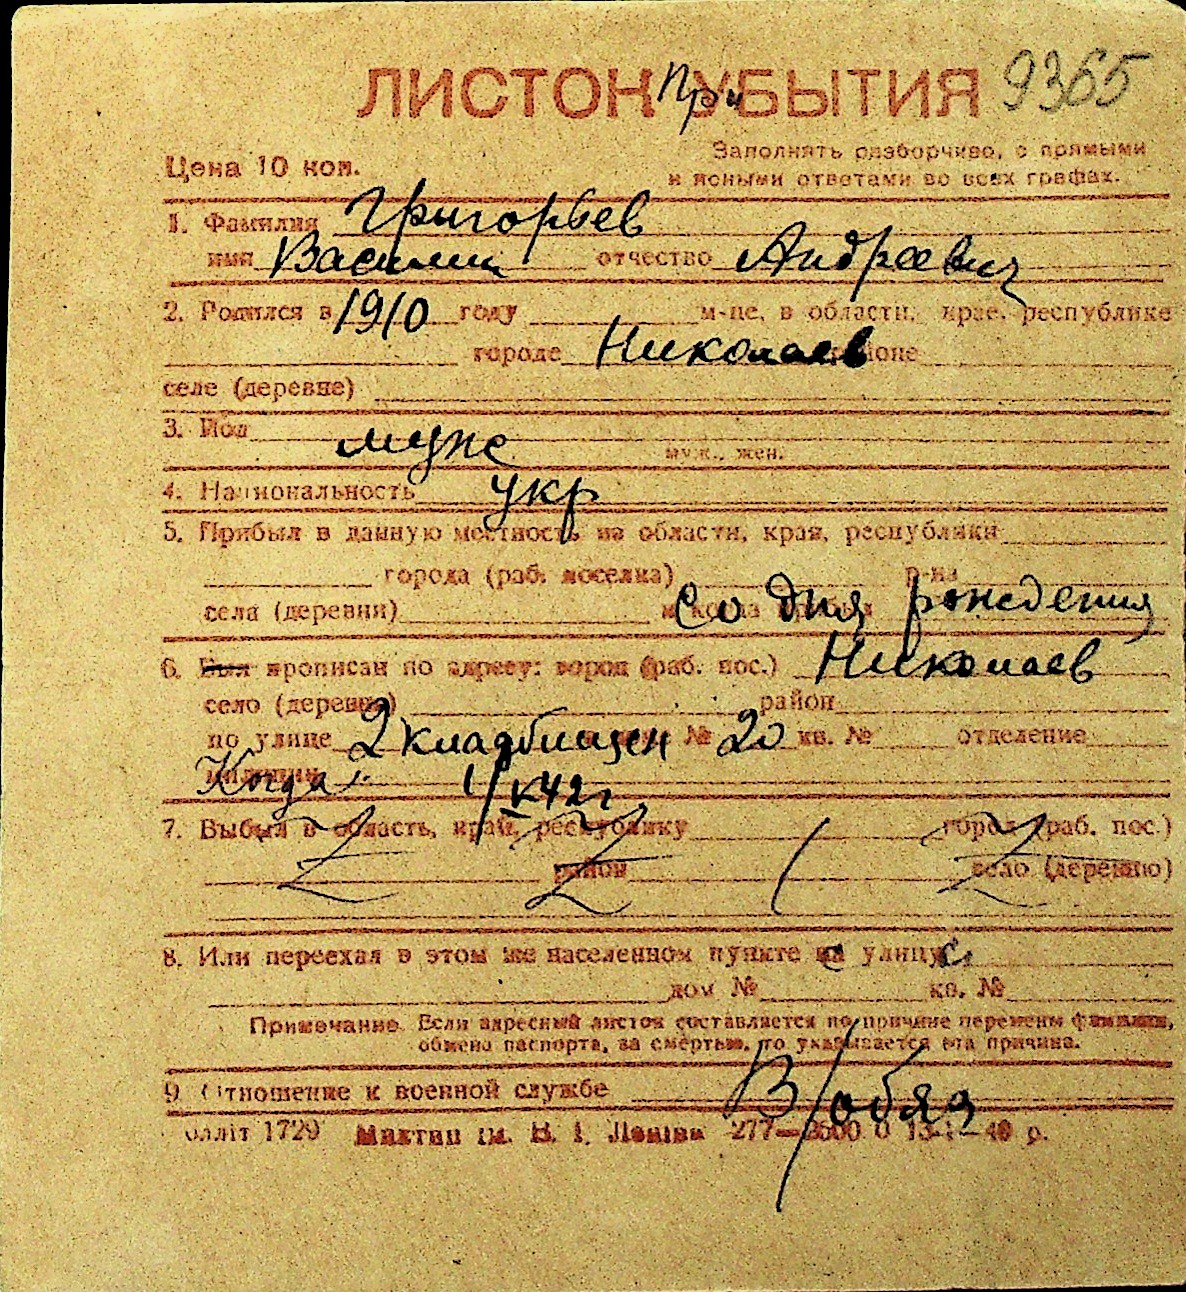 ЛИСТОК При УБЫТИЯ 9365
Цена 10 коп.
Заполнять разборчиво, с прямыми
и ясными ответами во всех графах.
1. Фамилия Григорьев
имя Василий отчество Андреевич
2. Родился в 1910 году м-це, в области, крае, республике
городе Николаев районе
селе (деревне)
3. Пол муж муж., жен.
4. Национальность укр
5. Прибыл в данную местность из области, края, республики
города (раб. поселка) р-на
села (деревни) и когда прибыл со дня рождения
6. Был прописан по адресу: город (раб. пос.) Николаев
село (деревня) район
по улице 2 кладбищен № 20 кв. № отделение
милиции Когда
7. Выбыл в область, край, республику город (раб. пос.)
район село (деревню)
8. Или переехал в этом же населенном пункте на улицу
дом № кв. №
Примечание. Если адресный листок составляется по причине перемены фамилии,
обмена паспорта, за смертью, то указывается эта причина.
9. Отношение к военной службе В/обяз
олліт 1729 Миктип ім. В. І. Леніна 277—